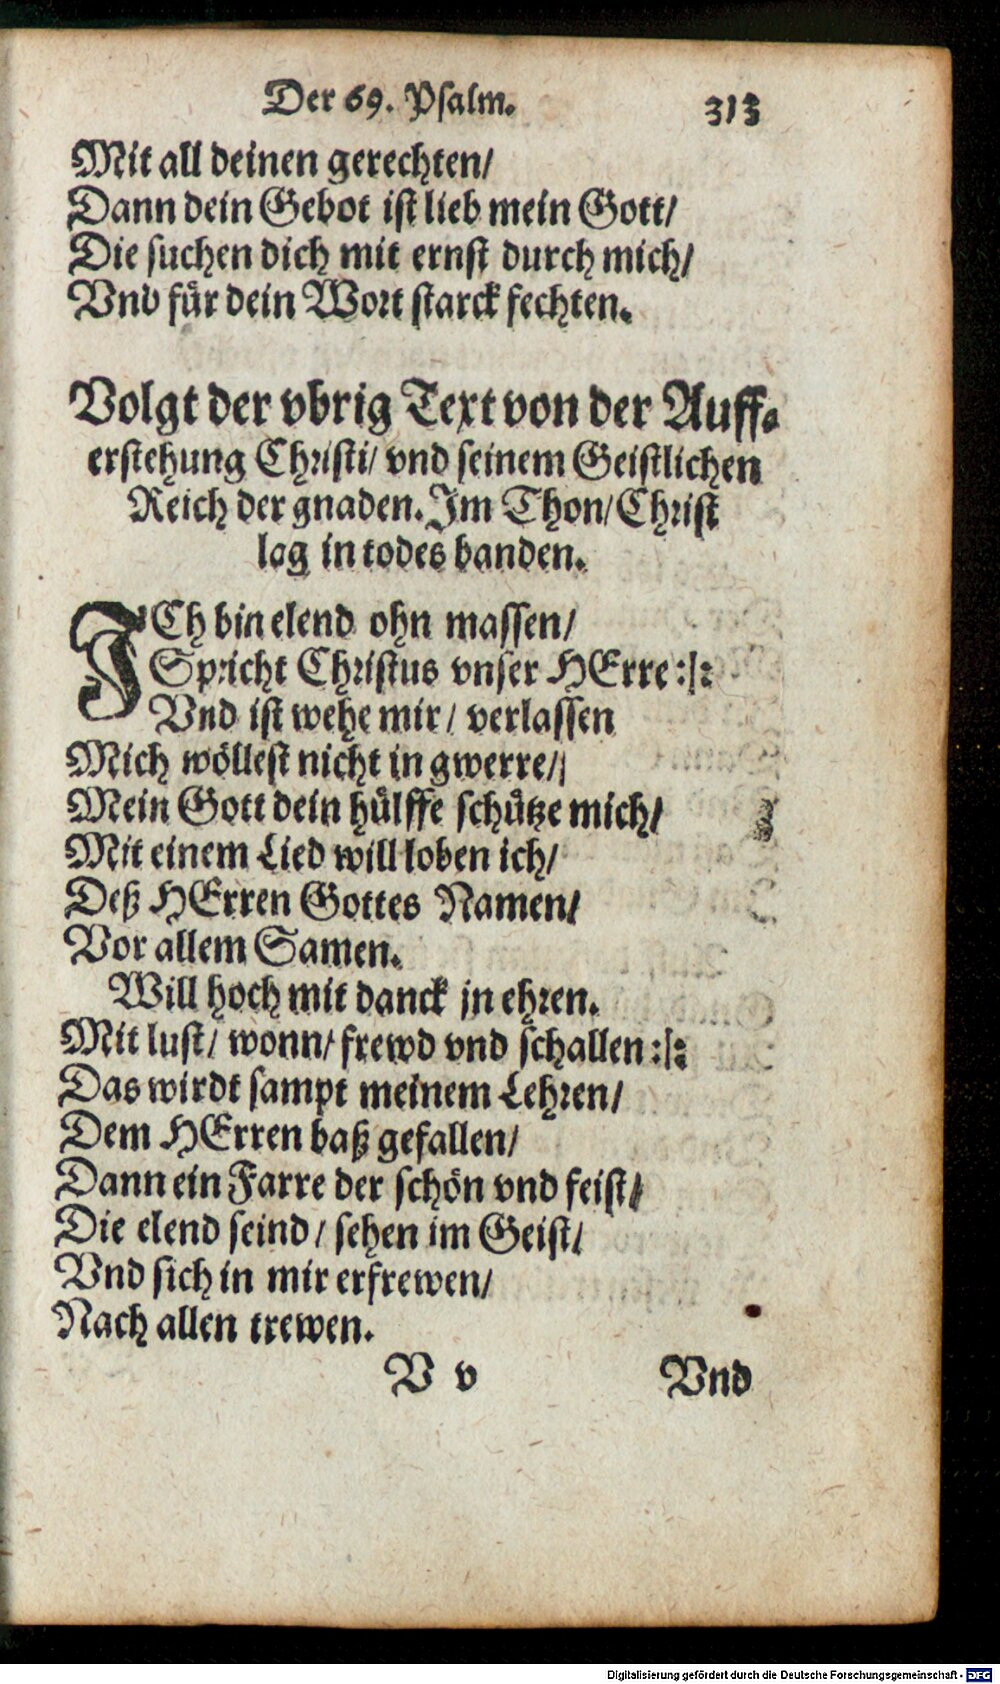 Der 69. Psalm. 313
Mit all deinen gerechten/
Dann dein Gebot ist lieb mein Gott/
Die suchen dich mit ernst durch mich/
Vnd für dein Wort starck fechten.
Volgt der vbrig Text von der Auff-
erstehung Christi/ vnd seinem Geistlichen
Reich der gnaden. Im Thon/ Christ
lag in todes banden.
ICh bin elend ohn massen/
Spricht Christus vnser HErre :|:
Vnd ist wehe mir/ verlassen
Mich wöllest nicht in gwerre/
Mein Gott dein hülffe schütze mich/
Mit einem Lied will loben ich/
Deß HErren Gottes Namen/
Vor allem Samen.
Will hoch mit danck jn ehren.
Mit lust/ wonn/ frewd vnd schallen :|:
Das wirdt sampt meinem Lehren/
Dem HErren baß gefallen/
Dann ein Farre der schön vnd feist/
Die elend seind/ sehen im Geist/
Vnd sich in mir erfrewen/
Nach allen trewen.
V v Vnd
Digitalisierung gefördert durch die Deutsche Forschungsgemeinschaft - DFG